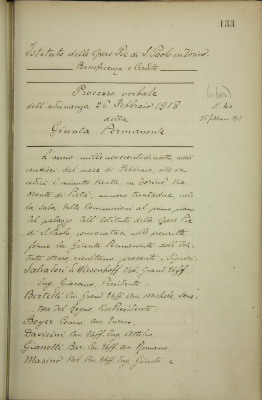 133
Istituto delle Opere Pie di S. Paolo in Torino
Beneficenza e Credito
Processo verbale
dell'adunanza 26 Febbraio 1918
della
Giunta Permanente
N. 40
26 febbraio 1918
L'anno millenovecentodiciotto addì
ventisei del mese di Febbraio, alle ore
e minuti trenta in Torino Via
Monte di Pietà, numero trentadue, nel
la Sala delle Commissioni al primo piano
del palazzo dell'Istituto delle Opere Pie
di S. Paolo convocatasi nelle prescritte
forme la Giunta Permanente dell'Isti
tuto stesso, risultano presenti i Signori:
Salvadori di Wiesenhoff Nob. Grand'Uff.
Ing. Giacomo, Presidente
Bertetti Cav. Grand'Uff. Avv. Michele, Sena
tore del Regno, Vice Presidente
Boyer Comm. Avv. Enrico,
Davicini Cav. Uff. Avv. Attilio
Gianotti Bar. Cav. Uff. Avv. Romano,
Masino Not. Cav. Uff. Ing. e